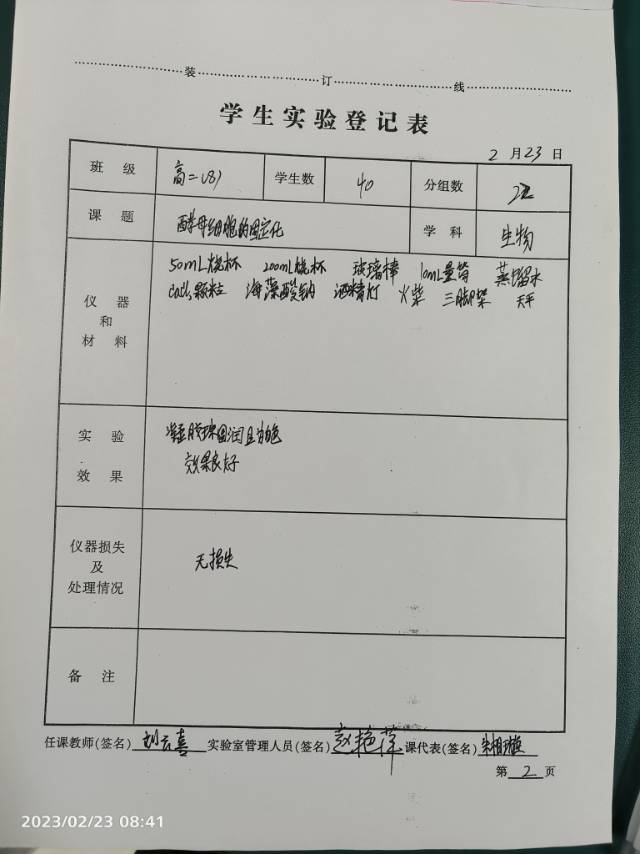 装 订 线
学生实验登记表
2 月 23 日
班 级 高二(8) 学生数 40 分组数
课 题 酵母细胞的固定化 学 科 生物
仪 器 和 材 料
50mL烧杯 200mL烧杯 玻璃棒 10mL量筒 蒸馏水
CaCl₂颗粒 海藻酸钠 酒精灯 火柴 三脚架 天平
实 验 效 果
凝胶珠圆润且为白色
效果良好
仪器损失
及
处理情况
无损失
备 注
任课教师(签名) 刘云喜 实验室管理人员(签名) 赵艳萍 课代表(签名)
第 2 页
2023/02/23 08:41